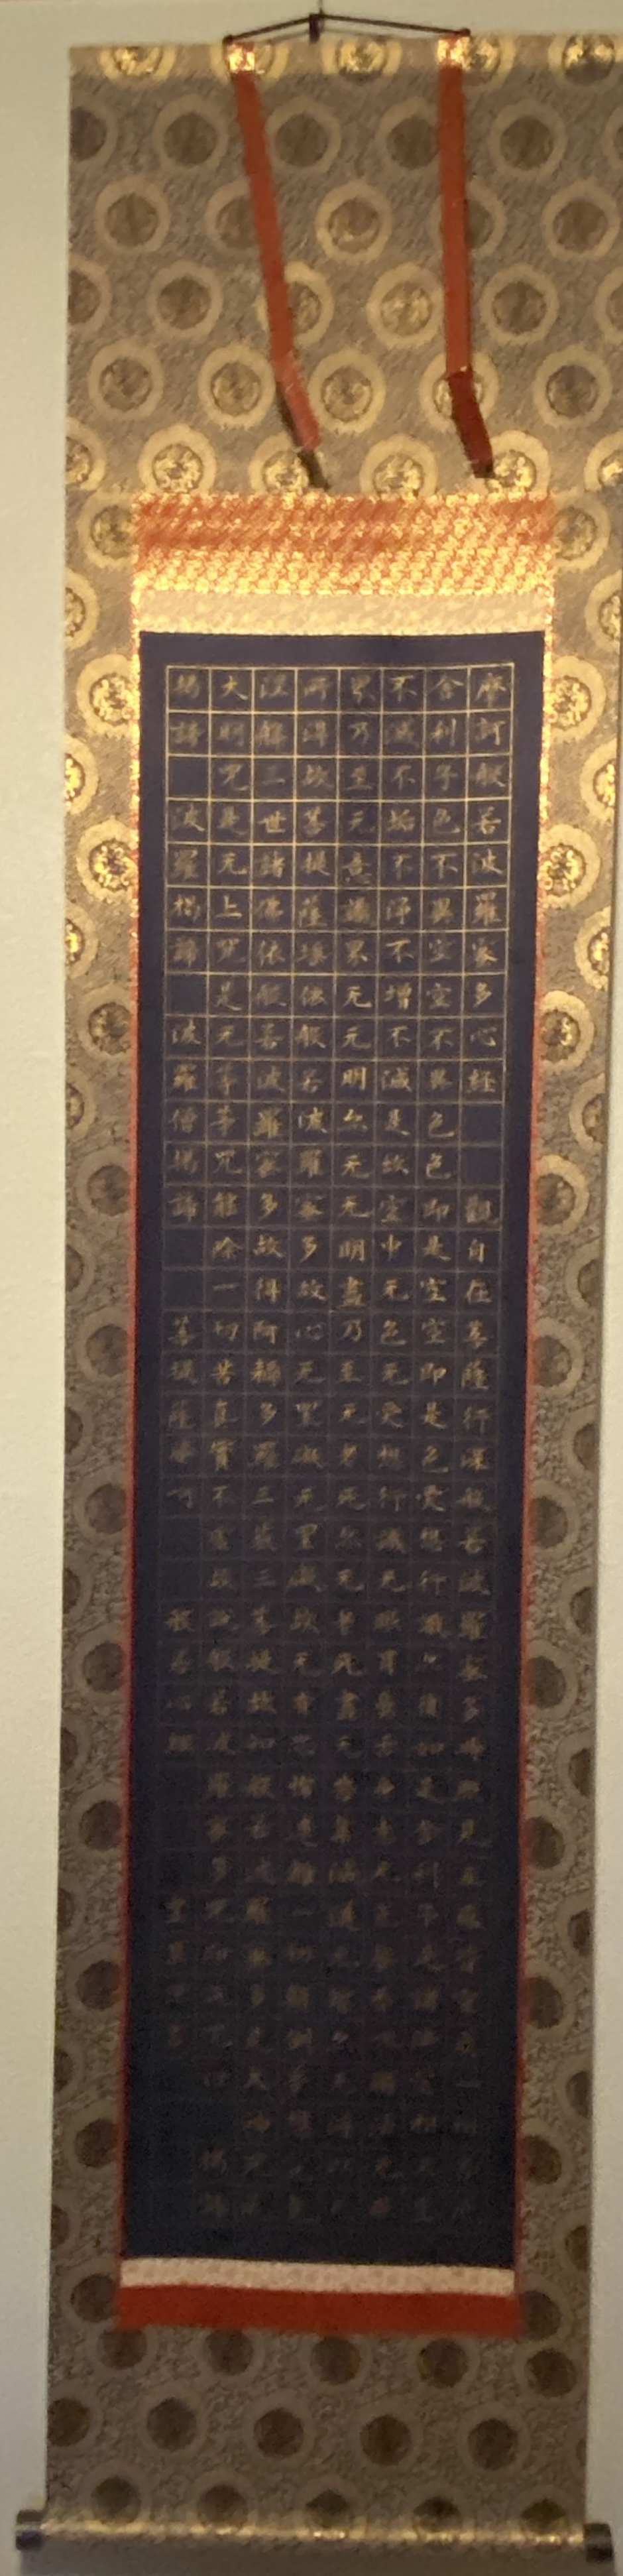 摩訶般若波羅蜜多心経 觀自在菩薩行深般若波羅蜜多時照見五蘊皆空度一切
舍利子色不異空空不異色色即是空空即是色受想行識亦復如是舍利子是諸法空相不生
不滅不垢不淨不增不減是故空中无色无受想行識无眼耳鼻舌身意无色聲香味觸法无眼
界乃至无意識界无无明亦无无明盡乃至无老死亦无老死盡无苦集滅道无智亦无得以无
所得故菩提薩埵依般若波羅蜜多故心无罣礙无罣礙故无有恐怖遠離一切顛倒夢想究竟
涅槃三世諸佛依般若波羅蜜多故得阿耨多羅三藐三菩提故知般若波羅蜜多是大神咒是
大明咒是无上咒是无等等咒能除一切苦真實不虛故說般若波羅蜜多咒即說咒曰 揭諦
揭諦 波羅揭諦 波羅僧揭諦 菩提薩婆訶 般若心經